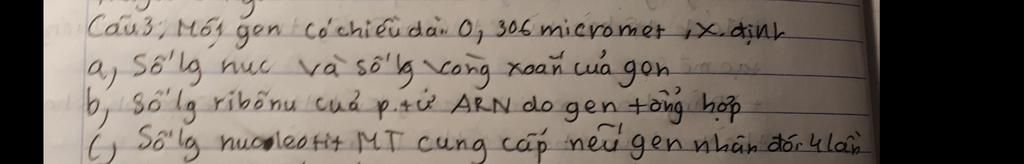 Câu3; Một gen có chiều dài 0, 306 micromet ; x. định
a, Số lg nuc và số lg vòng xoắn của gen
b, Số lg ribônu của p.tử ARN do gen tổng hợp
c, Số lg nucleotit MT cung cấp nếu gen nhân đôi 4 lần